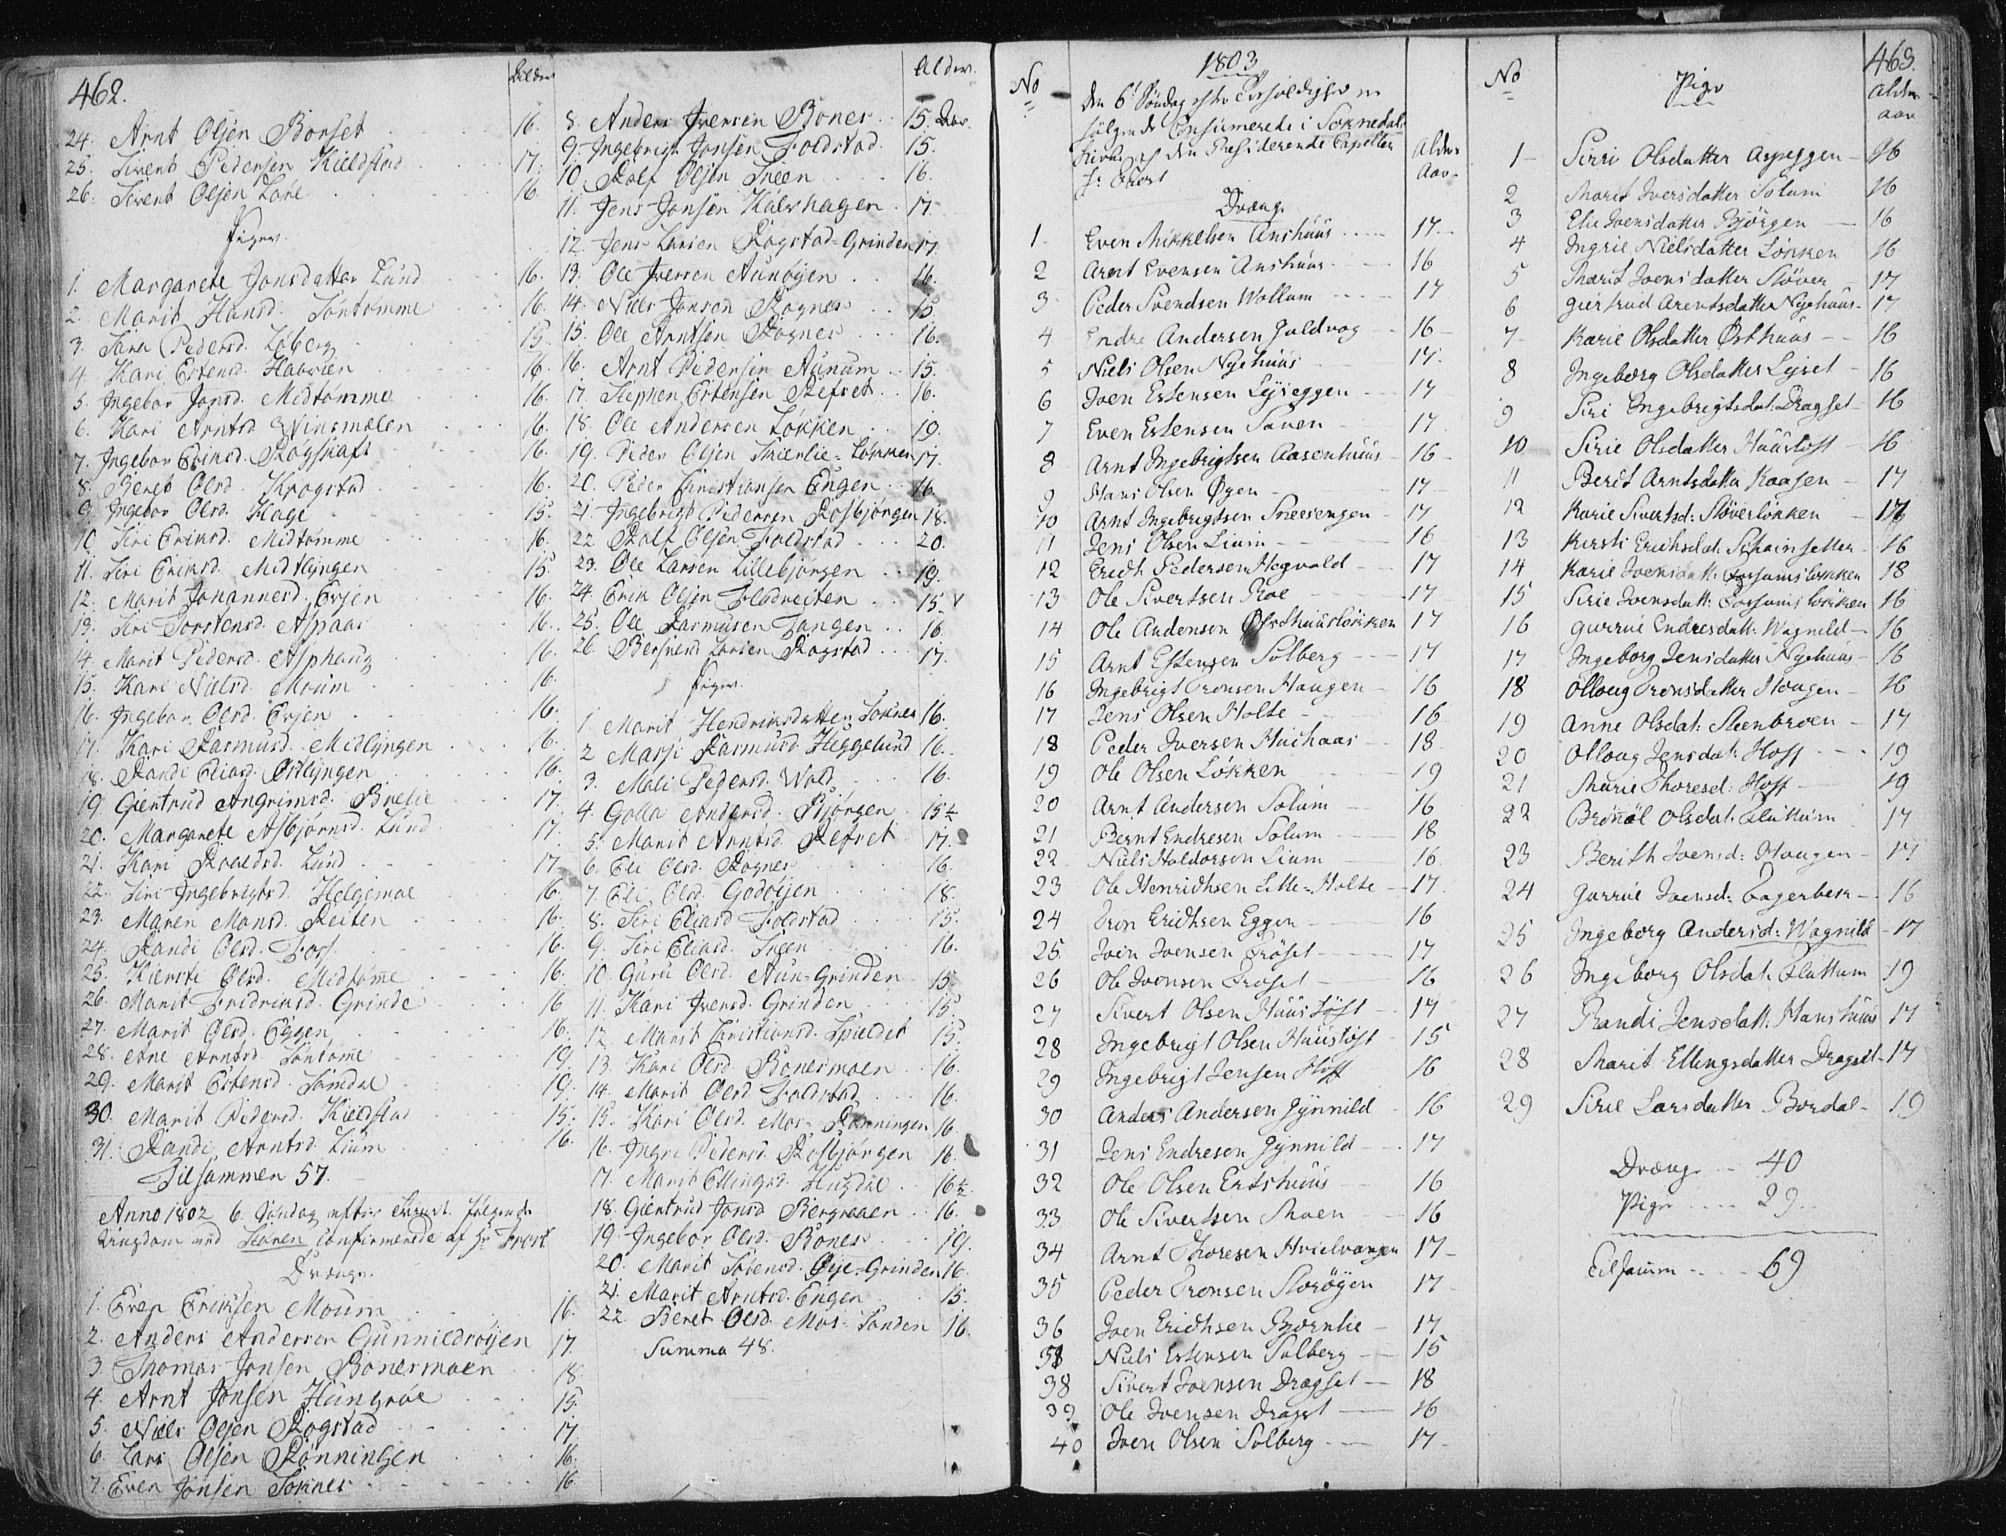 462.
Alder
24. Arnt Olsen Borset 16.
25. Sivert Pedersen Kieldstad 17.
26. Sivert Olsen 16.
Piger.
1. Margarete Jonsdatter Lund 16.
2. Marit Hansd. Söntömme 16.
3. Pedersd. Löberg 15.
4. Kari Estensd. 16.
5. Ingebor Jonsd. Midtömme 16.
6. Kari Arntsd. Vinsmælen 16.
7. Ingebor Eriksd. Rogskaft 16.
8. Beret Olsd. Krogstad 16.
9. Ingebor Olsd. Hage 15.
10. Siri Eriksd. Midtömme 16.
11. Siri Eriksd. Midtlyngen 15.
12. Marit Johannesd. Evjen 16.
13. Siri Torstensd. Aspaas 16.
14. Marit Pedersd. Asphaug 16.
15. Kari Nielsd. Moum 16.
16. Ingebor Olsd. Evjen 16.
17. Kari Rasmusd. Midlyngen 16.
18. Randi Eliasd. Östlyngen 16.
19. Giertrud Angrimsd. 17.
20. Margarete Asbjörnsd. Lund 17.
21. Kari Roaldsd. Lund 17.
22. Siri Ingebrigtsd. Helgemoe 16.
23. Maren Monsd. Reiten 16.
24. Randi Olsd. Fors 16.
25. Kiersti Olsd. Midtöme 16.
26. Marit Fredriksd. Grinde 16
27. Marit Olsd. Eggen 16.
28. Ane Arntsd. Söntöme 19.
29. Marit Estensd. Samdal 19.
30. Marit Pedersd. Kieldstad 15.
31. Randi Arntsd. Lium 16.
Tilsammen 57.
Anno 1802 6. Söndag efter følgende
Ungdom ved Stören confirmerede af Hr Frost
Drænge.
1. Even Eriksen Moum 16.
2. Anders Andersen Gunnildröyen 17.
3. Thomas Jonsen Bonesmoen 18.
4. Arnt Jonsen Hungröe 15.
5. Niels Olsen Rogstad 17.
6. Lars Olsen Rönningen 16.
7. Even Jonsen Soknes 16.
Alder.
8. Anders Iversen Bones 15. Aar.
9. Ingebrigt Jonsen Foldstad. 15.
10. Rolf Olsen Sneen 16.
11. Jens Jonsen Kalvhagen. 17.
12. Jens Larsen Rogstad-Grinden 17.
13. Ole Iversen Aunöyen 16.
14. Niels Jonsen Rognes 15.
15. Ole Arntsen Rognes 16.
16. Arnt Pedersen Aunum 15.
17. Stephen Estensen Refset 16.
18. Ole Andersen Løkken 19.
19. Peder Olsen Skierlie-Løkken 17.
20. Peder Christiansen Engen 16.
21. Ingebrigt Pedersen Rosbjørgen 18.
22. Rolf Olsen Foldstad 20.
23. Ole Larsen Lillebjørgen 19.
24. Erik Olsen Flodreiten 15.
25. Ole Rasmusen Tangen 16.
26. Larsen Rogstad 17.
Piger.
1. Marit Hendriksdatter Soknes 16.
2. Massi Rasmusd. Heggelund 16.
3. Mali Pedersd. Wold 16.
4. Golla Andersd. Bjørgen 15½
5. Marit Arntsd. Refset 17.
6. Eli Olsd. Rognes 16.
7. Eli Olsd. Godöyen 18.
8. Siri Eliasd. Foldstad 15.
9. Siri Eliasd. Sneen 16.
10. Guru Olsd. Aun-Grinden 15.
11. Kari Iversd. Grinden 15.
12. Marit Christiansd. Spieldet 15.
13. Kari Olsd. Bonesmoen 16.
14. Marit Olsd. Foldstad 16.
15. Kari Olsd. Mos-Rønningen 16.
16. Ingri Pedersd. Rosbjørgen 16.
17. Marit Ellingsd. Hugdal 16½
18. Giertrud Jonsd. Bergmoen 16.
19. Ingebor Olsd. Bones 19.
20. Marit Estensd. Øye-Grinden 16.
21. Marit Arntsd. Engen 15.
22. Beret Olsd. Mos-Sanden 16.
Summa 48.
No
1803
Den 6te Søndag efter
følgende Confirmerede i Soknedals
Kirke af den Residerende Capellan
Hr. Frost
Alder
Aar.
Drænge
1 Even Mikkelsen Anshuus 17
2 Arnt Evensen Anshuus 16
3 Peder Svendsen Wollum 17
4 Endre Andersen Guldvog 16
5 Niels Olsen Nyehuus 17
6 Joen Estensen Lyseggen 17
7 Even Estensen Saven 17
8 Arnt Ingebrigtsen Aasenhuus 16
9 Hans Olsen Øgen 17
10 Arnt Ingebrigtsen Sneesengen 17
11 Jens Olsen Lium 16
12 Eridh Pedersen Hogvold 17
13 Ole Sivertsen Roe 17
14 Ole Andersen Østhuusløkken 17
15 Arnt Estensen Solberg 17
16 Ingebrigt Tronsen Haugen 16
17 Jens Olsen Holte 16
18 Peder Iversen Huihaas 18
19 Ole Olsen Løkken 19
20 Arnt Andersen Solum 16
21 Bernt Endresen Solum 18
22 Niels Haldorsen Lium 16
23 Ole Henridhsen Litle-Holte 17
24 Tron Eridhsen Eggen 16
25 Joen Joensen Frøset 17
26 Ole Joensen Frøset 16
27 Sivert Olsen Huustøft 17
28 Ingebrigt Olsen Huustoft 15
29 Ingebrigt Jensen Hoff 16
30 Anders Andersen Gynnild 16
31 Jens Endresen Gynnild 17
32 Ole Olsen Ertshuus 16
33 Ole Sivertsen Moen 16
34 Arnt Thoresen Hvielvangen 17
35 Peder Tronsen Storøyen 17
36 Joen Eridhsen Bjørnlie 17
38 Niels Estensen Solberg 15
38 Sivert Joensen Dragset 18
39 Ole Joensen Dragset 16
40 Joen Olsen Solberg 17
No
Pige
463.
Alder
aar
1 Sirri Olsdatter Aspeggen 16
2 Marit Iversdatter Solum 16
3 Elie Joensdatter Bjørgen 16
4 Ingrie Nielsdatter Løkken 16
5 Marit Joensdatter Støver 17
6 Giertrud Arentsdatter Nyehuus 17
7 Karie Olsdatter Østhuus 16
8 Ingeborg Olsdatter Lyset 16
9 Siri Ingebrigtsdat: Dragset 16
10 Sirie Olsdatter Huustoft 16
11 Berit Arntsdatter Kaasen 17
12 Karie Sivertsd: Støverløkken 17
13 Kirsti Erichsdat: 16
14 Karie Joensdatt: Forsumsløkken 18
15 Sirie Joensdatt: Forsumsløkken 16
16 Gurrue Endresdatt: Wagnild 16
17 Ingeborg Jensdatter Nyehuus 16
18 Olloug Tronsdatter Hougen 16
19 Anne Olsdat: Steenbroen 17
20 Olloug Jensdat: Hoff 19
21 Marie Thoresd: Hoff 19
22 Olsdat: Fluttum 17
23 Berith Joensd: Hougen 17
24 Gurrue Joensd: Fagerbek 16
25 Ingeborg Andersd: Wagnild 17
26 Ingeborg Olsdat: Fluttum 19
27 Randi Jensdatt: Hanshuus 17
28 Marit Ellingsdatter Dragset 17
29 Sirie Larsdatter Bordal 19
Drænge 40
Pige 29
Tilsamm 69